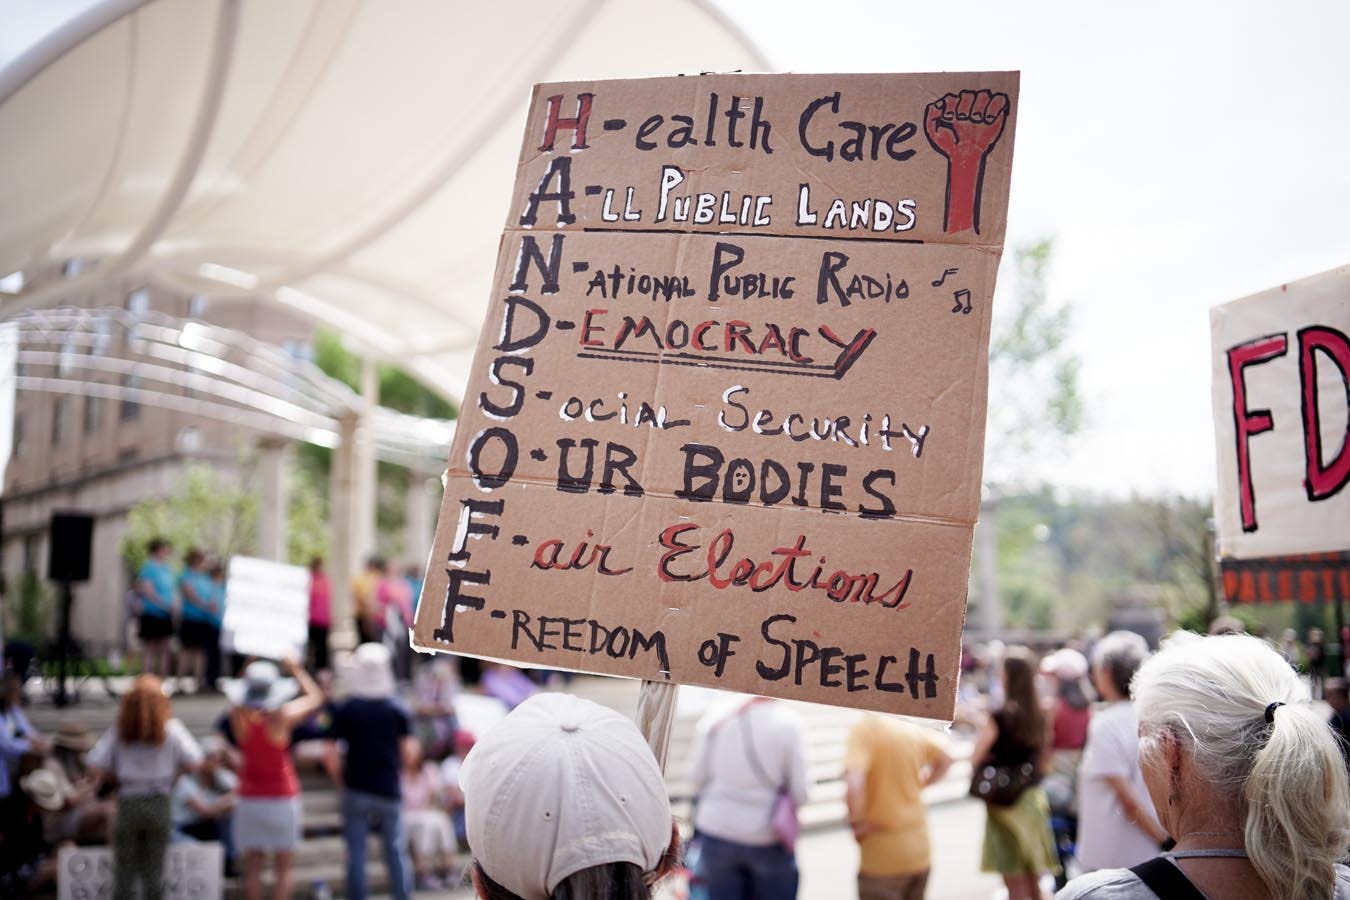 H-ealth Care
A-LL PUBLIC LANDS
N-ATIONAL PUBLIC RADIO
D-EMOCRACY
S-OCIAL SECURITY
O-UR BODIES
F-air Elections
F-REEDOM OF SPEECH
FD
PALEST